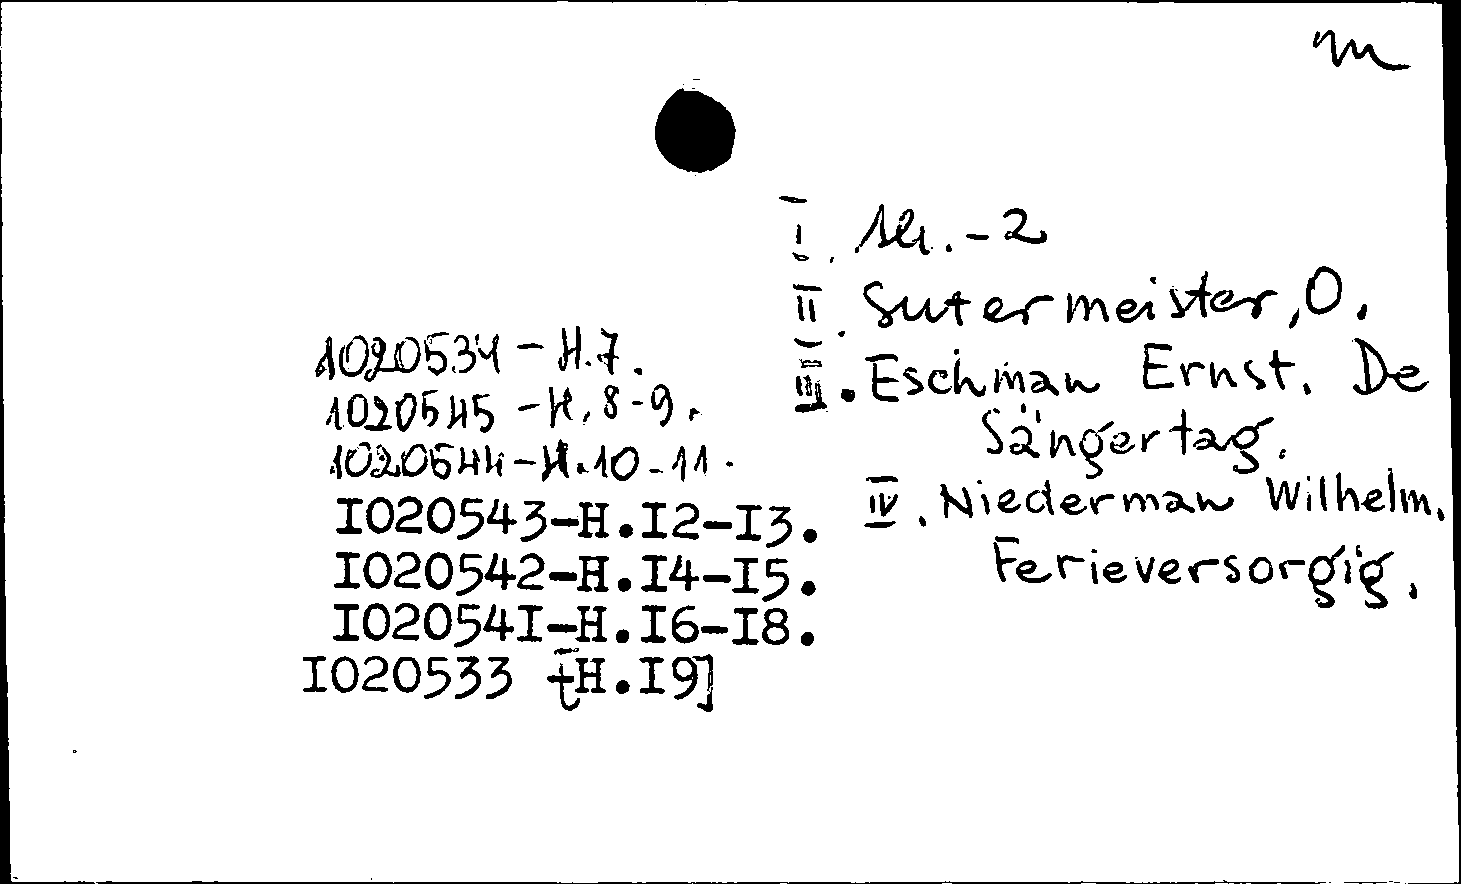 m
I. Ш.-2
II. Sutermeister, O.
III. Eschman Ernst. De
Sängertag.
IV. Niederman Wilhelm.
Ferieversorgig.
1020534 - H.7.
1020545 - H. 8-9.
1020544-H.10-11.
I020543-H.I2-I3.
I020542-H.I4-I5.
I02054I-H.I6-I8.
I020533 [-H.I9]